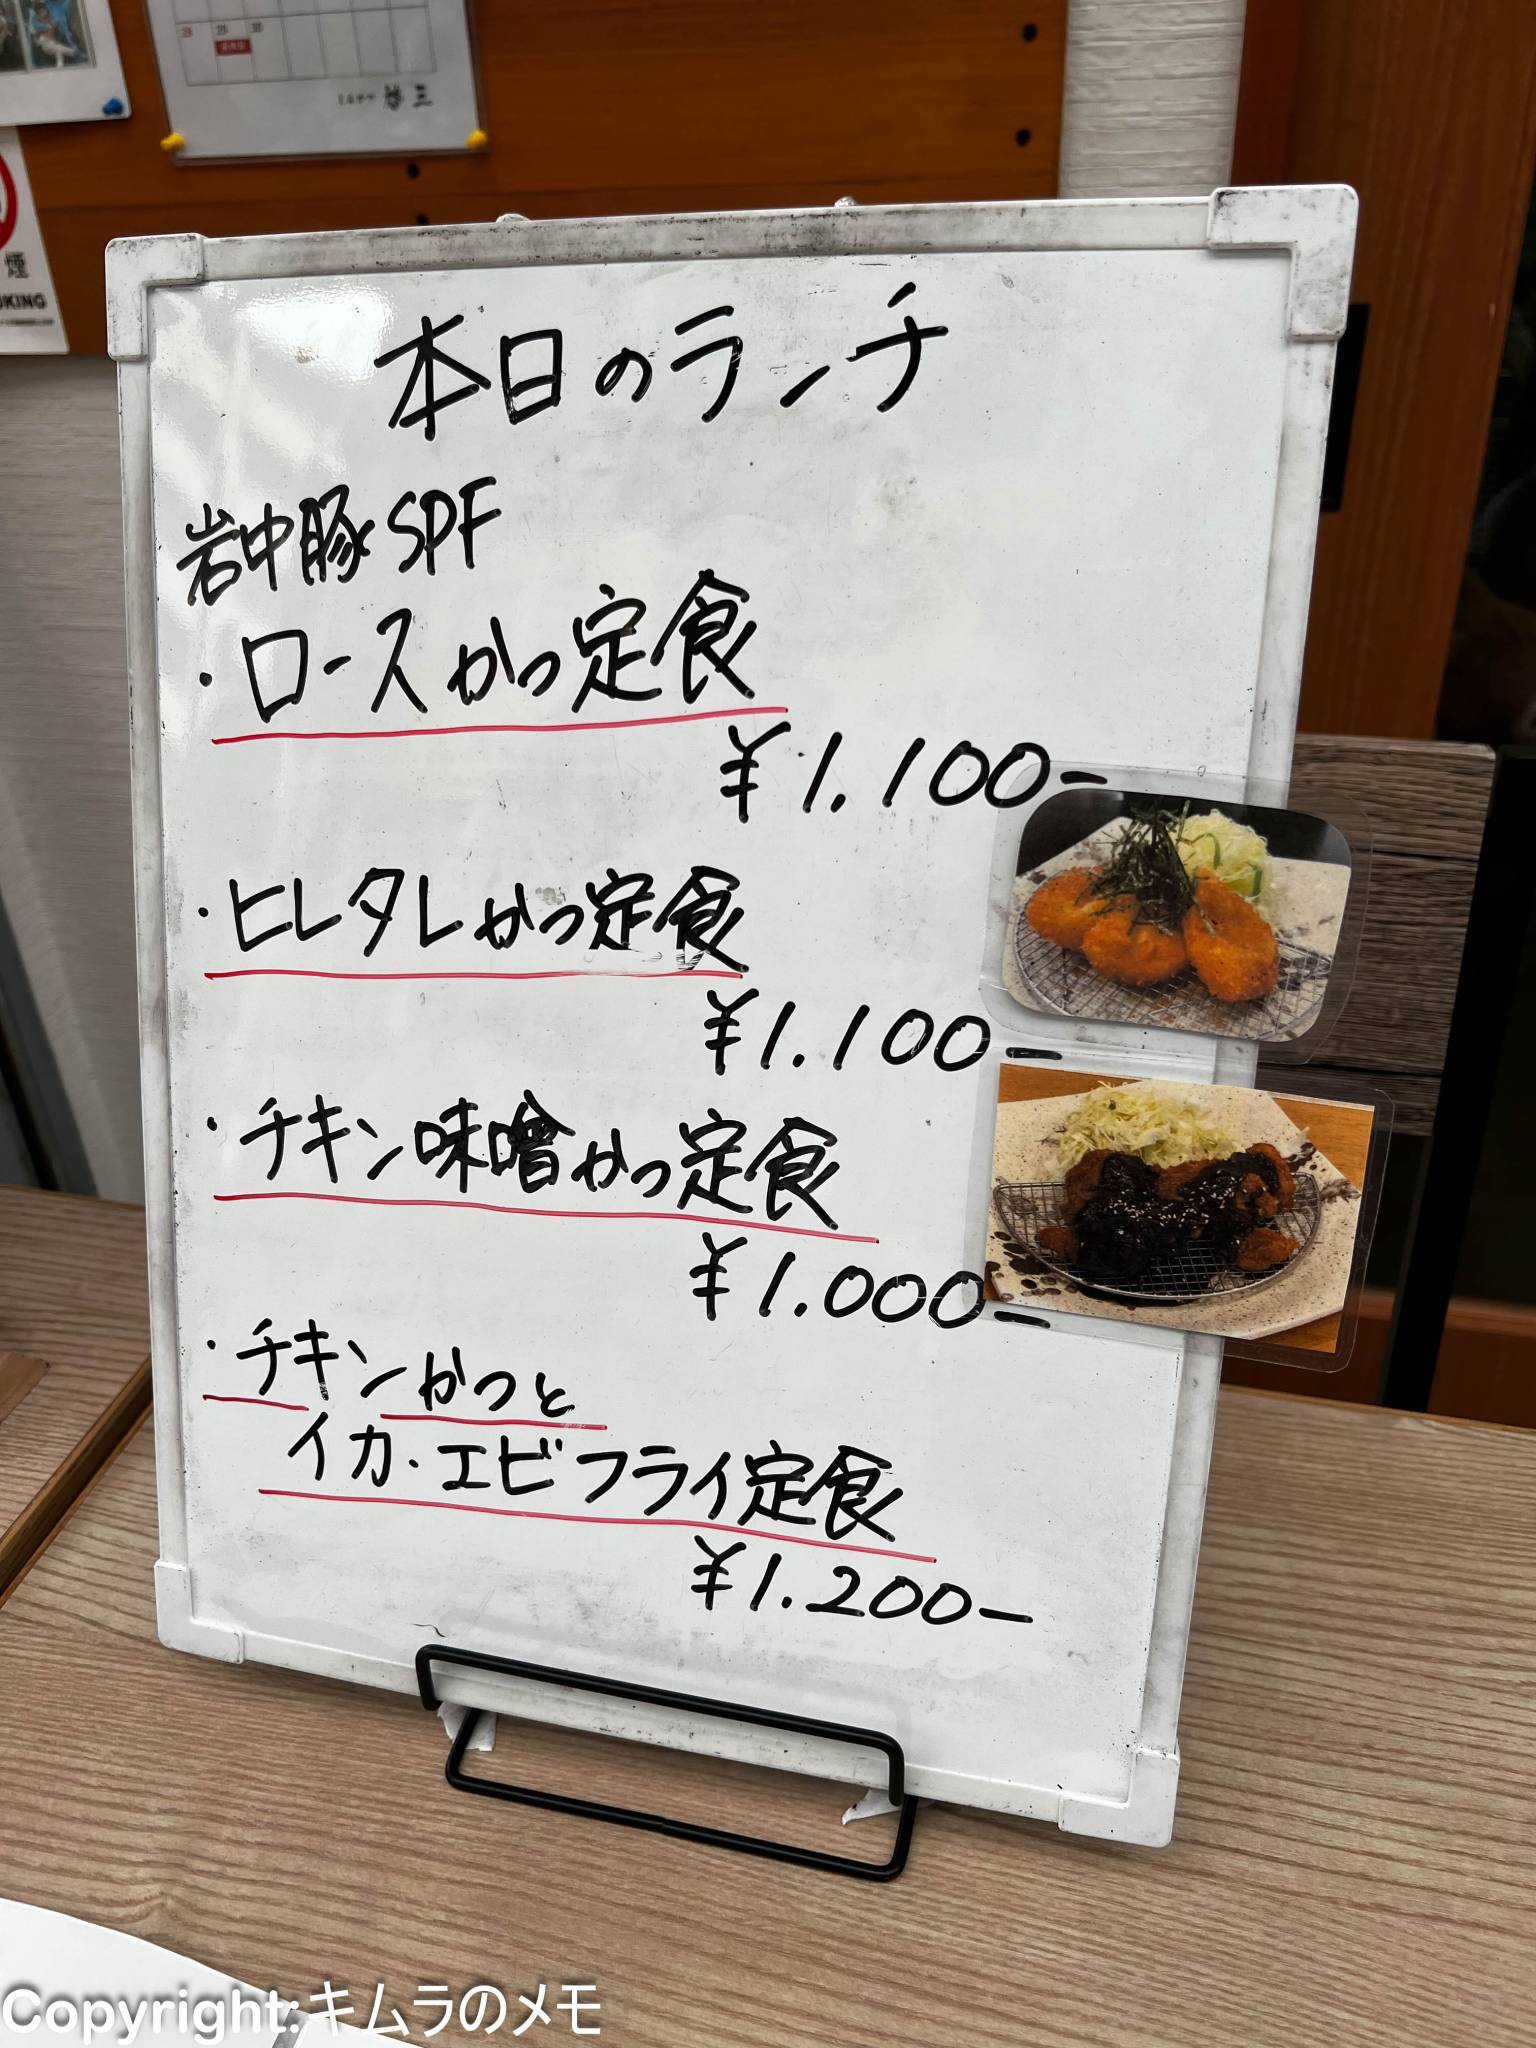 28 29 30
煙
OKING
本日のランチ
岩中豚SPF
・ロースかつ定食
¥1.100-
・ヒレタレかつ定食
¥1.100-
・チキン味噌かつ定食
¥1.000-
・チキンかつと
イカ・エビフライ定食
¥1.200-
Copyright:キムラのメモ